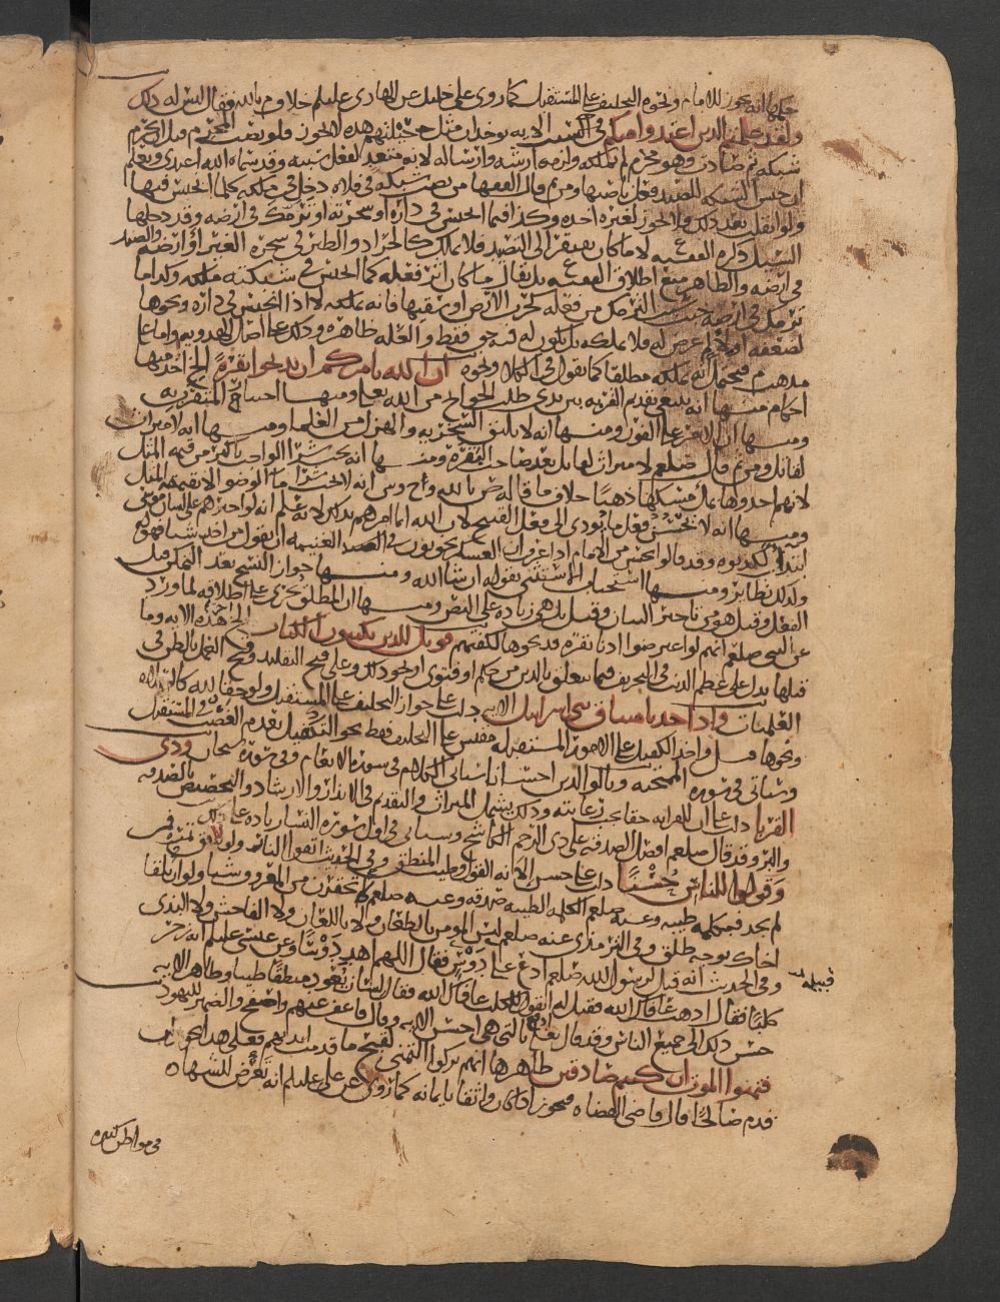 حكمها انه يجوز للامام ونحوه التحليف على المستقبل كما روى على خليل عن الهادى عليلم خلاف م بالله فقال ليس له ذلك
ولقد علمتم الذين اعتدوا منكم فى السبت الايه يوخذ ان مثل حيلتهم هذه لا تجوز ولو نصب المحرم قبل احرم
شبكه ثم صادت وهو محرم لم تملكه ولزمه ارشه وارساله لانه متعد لفعل سببه وقد سماه الله اعتدى ويعلم
ان حبس الشبكه للصيد فعل ناصبها ومن ثم قال الفقها من نصب شبكه فى فلاه دخل فى ملكه كلما انحبس فيها
ولو انفلت بعد ذلك ولا يجوز لغيره اخذه وكذا فيما انحبس فى داره او سحرته او توحل فى ارضه وقد دخلها
السيل ذكره الفقيه لا ما كان يفتقر الى التصيد فلا يملك كالجراد والطير فى شجره الغير او ارضه والصيد
فى ارضه والظاهر منع اطلاق الفقيه بل يقال ما كان اثر فعله كما انحبس فى شبكته ملكه وكذا ما
توحل فى ارضه حيث التوحل من فعله كحرث الارض او سقيها فانه يملكه لا اذا انحبس فى داره ونحوها
لضعفه او لا لم عرض له فلا يملكه بل يكون له فيه حق فقط والعله ظاهره وذلك على اصل الهدويه واما على
مذهب م فيحتمل انه يملكه مطلقا كما نقول فى الكلا ونحوه ان الله يامركم ان تذبحوا بقرة الخ اخذ منها
احكام منها انه ينبغى تقديم القربه بين يدى طلب الحوائج من الله تعالى ومنها احسان المتقرب به
ومنها ان الامر على الفور ومنها انه لا يليق السخريه والهزل من العلما ومنها انه لا ميراث
لقاتل ومن ثم قال صلعم لا ميراث لقاتل بعد صاحب البقره ومنها انه يجب شرا الواجب باكثر من قيمه المثل
لانهم اخذوها بمل مسكها ذهبا خلاف ما قاله ض بالله وح وش انه لا يجب شرا ما الوضو الا بقيمه المثل
ومنها انه لا يحسن فعل ما يودى الى وقل القبيح لان الله انما امرهم بذلك لانه علم انه لو اخبرهم على لسان موسى
ابتدا لكذبوه وقد قالوا يحسن من الامام اذا عرف ان العسكر يخونون فى الغنيمه ان يقول من اخذ شيا فهو له
ولذلك نظاير ومنها استحباب الاستثنى بقوله ان شا الله ومنها جواز النسخ بعد التمكن قبل
الفعل وقيل هو من تاخير البيان وقيل بل هى زياده على النص ومنها ان المطلق يجرى على اطلاقه لما ورد
عن النبى صلعم انهم لو اعترضوا ادنا بقره فذبحوها لكفتهم فويل للذين يكتبون الكتاب الخ هذه الايه وما
قبلها يدل على عظم الذنب فى التحريف فيما يتعلق بالدين من حكم او فتوى او نحو ذلك وعلى قبح التقليد وقبح العمل بالظن فى
العلميات واذ اخذنا ميثاق بنى اسرائيل الايه دلت على جواز التحليف على المستقبل ولو حقا لله كالصلاه
ونحوها قيل واخذ الكفيل على الامور المستقبله مقيس على التحليف فقط نحو التكفيل بعدم الغصب فى المستقبل
وسياتى فى سوره الممتحنه وبالوالدين احسانا سياتى الكلام فى سوره الانعام وفى سوره سبحان وذى
القربى دلت على ان للقرابه حقا يجب رعايته وذلك يشمل الميراث والتقديم فى الانذار والارشاد والتخصيص بالصدقه
والبر وقد قال صلعم افضل الصدقه على ذى الرحم الكاشح وسياتى فى اول سوره النسا زياده على ذلك
وقولوا للناس حسنا دلت على حسن الانه القول وطيب المنطق وفى الحديث اتقوا النار ولو بشق تمره فمن
لم يجد فبكلمه طيبه وعنه صلعم الكلمه الطيبه صدقه وعنه صلعم لا تحقرن من المعروف شيا ولو ان تلقا
اخاك بوجه طلق وفى الترمذى عنه صلعم ليس المومن بالطعان ولا باللعان ولا الفاحش ولا البذى
وفى الحديث انه قيل لرسول الله صلعم ادع على دوس فقال اللهم اهد دوسا وعن عيسى عليلم انه زجر
كلبا فقال اذهب عافاك الله فقيل له اتقول للكلب عافاك الله فقال لسان تعود منطقا طيبا وظاهر الايه
حسن ذلك الى جميع الناس وقد قال تعالى ادفع بالتى هى احسن الايه وقال فاعف عنهم واصفح والضمير لليهود
فتمنوا الموت ان كنتم صادقين ظاهرها انهم تركوا التمنى لقبح ما قدمت ايديهم فعلى هذا يجوز لمن
قدم صالحا قال قاضى القضاه فيجوز اذا كان واثقا بايمانه كما روى عن على عليلم انه تعرض للشهاه
قبيله
فى مواطن كثيره